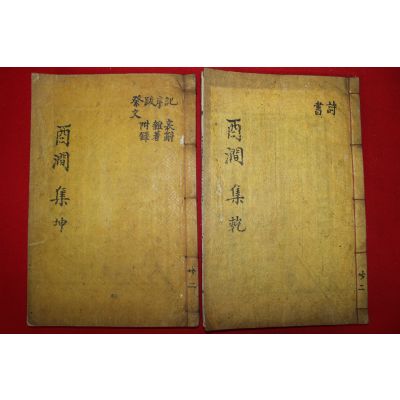 詩
書
酉澗集 乾
共二
記 哀辭
序 雜著
跋 附錄
祭文
酉澗集 坤
共二